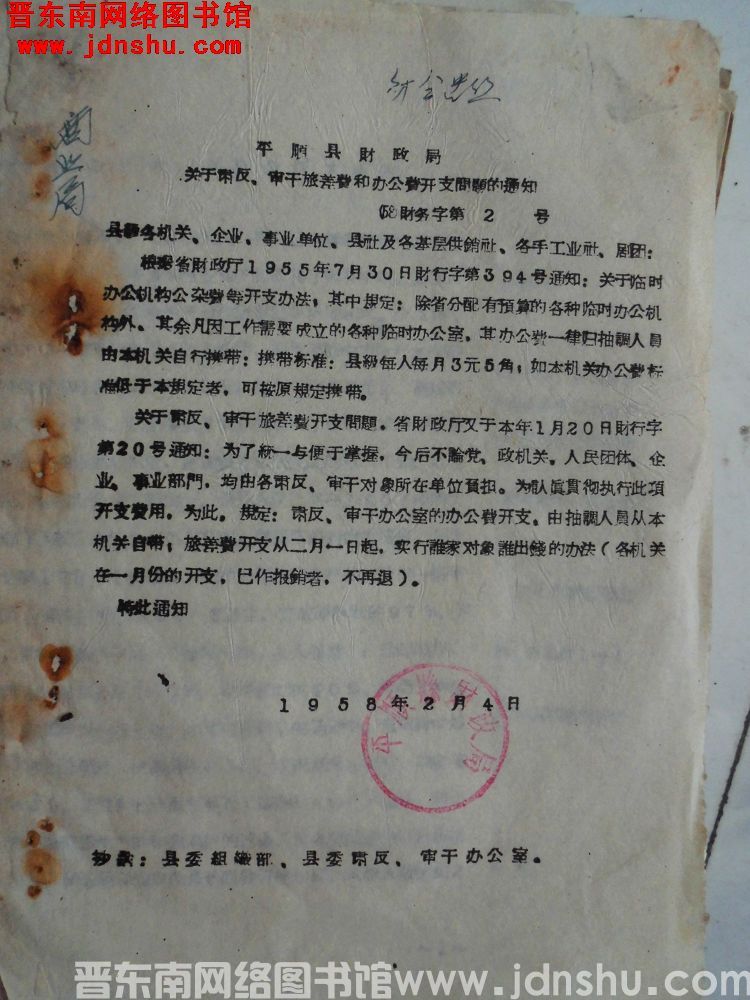 晋东南网络图书馆
www.jdnshu.com
财会
商业局
平順县財政局
关于肃反、审干旅差費和办公費开支問題的通知
(58)財务字第 2 号
县各机关、企业、事业单位、县社及各基层供銷社、各手工业社、剧团：
根据省財政厅1955年7月30日財行字第394号通知：关于临时
办公机构公杂費等开支办法，其中規定：除省分配有預算的各种临时办公机
构外。其余凡因工作需要成立的各种临时办公室，其办公費一律归抽調人員
由本机关自行携带：携带标准：县級每人每月3元5角；如本机关办公費标
准低于本規定者，可按原規定携带。
关于肃反、审干旅差費开支問題。省財政厅又于本年1月20日財行字
第20号通知：为了統一与便于掌握，今后不論党、政机关。人民团体、企
业、事业部門，均由各肃反、审干对象所在单位負担。为認眞貫彻执行此項
开支費用，为此。規定：肃反、审干办公室的办公費开支，由抽調人員从本
机关自带；旅差費开支从二月一日起，实行誰家对象誰出錢的办法（各机关
在一月份的开支，已作报銷者，不再退）。
特此通知
1958年2月4日
平順县財政局
抄 ：县委組織部、县委肃反、审干办公室。
晋东南网络图书馆www.jdnshu.com